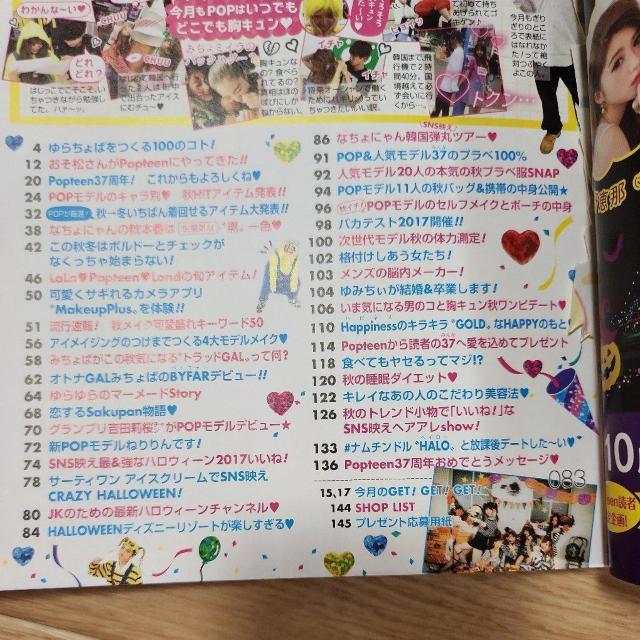 わかんな~い♥
今月もPOPはいつでも
どこでも胸キュン♥
CHUU
CHUU
どれ
どれ?
イチャ
イチャ
トクン…
4 ゆらちょぱをつくる100のコト!
12 おそ松さんがPopteenにやってきた!!
20 Popteen37周年! これからもよろしくね♥
24 POPモデルのキャラ別♥ 秋HITアイテム発表!!
32 POPが厳選! 秋→冬いちばん着回せるアイテム大発表!!
38 なちょにゃんの秋本番は
42 この秋冬はボルドーとチェックが
なくっちゃ始まらない!
46 LaLa♥Popteen♥Landの旬アイテム!
50 可愛くサギれるカメラアプリ
"MakeupPlus"を体験!!
51 流行速報! 秋メイク可愛盛れキーワード50
56 アイメイジングのつけまでつくる4大モデルメイク♥
58 みちょぱがこの秋気になる"トラッドGAL"って何?
62 オトナGALみちょぱのBYFARデビュー!!
64 ゆらゆらのマーメードStory
68 恋するSakupan物語♥
70 グランプリ吉田莉桜がPOPモデルデビュー★
72 新POPモデルねりりんです!
74 SNS映え最&強なハロウィーン2017いいね!
78 サーティワン アイスクリームでSNS映え
CRAZY HALLOWEEN!
80 JKのための最新ハロウィーンチャンネル♥
84 HALLOWEENディズニーリゾートが楽しすぎる♥
SNS映え
86 なちょにゃん韓国弾丸ツアー♥
91 POP&人気モデル37のプラベ100%
92 人気モデル20人の本気の秋プラベ服SNAP
94 POPモデル11人の秋バッグ&携帯の中身公開★
96 秋イチ POPモデルのセルフメイクとポーチの中身
98 バカテスト2017開催!!
100 次世代モデル秋の体力測定!
102 格付けしあう女たち!
103 メンズの脳内メーカー!
104 ゆみちぃが結婚&卒業します!
106 いま気になる男のコと胸キュン秋ワンピデート♥
110 Happinessのキラキラ"GOLD"なHAPPYのもと
114 Popteenから読者の37へ愛を込めてプレゼント
118 食べてもヤセるってマジ!?
120 秋の睡眠ダイエット♥
122 キレイなあの人のこだわり美容法♥
126 秋のトレンド小物で「いいね!」な
SNS映えヘアアレshow!
133 #ナムチンドル"HALO"と放課後デートした~い♥
136 Popteen37周年おめでとうメッセージ♥
15,17 今月のGET! GET! GET!
144 SHOP LIST
145 プレゼント応募用紙
083
恵那
10